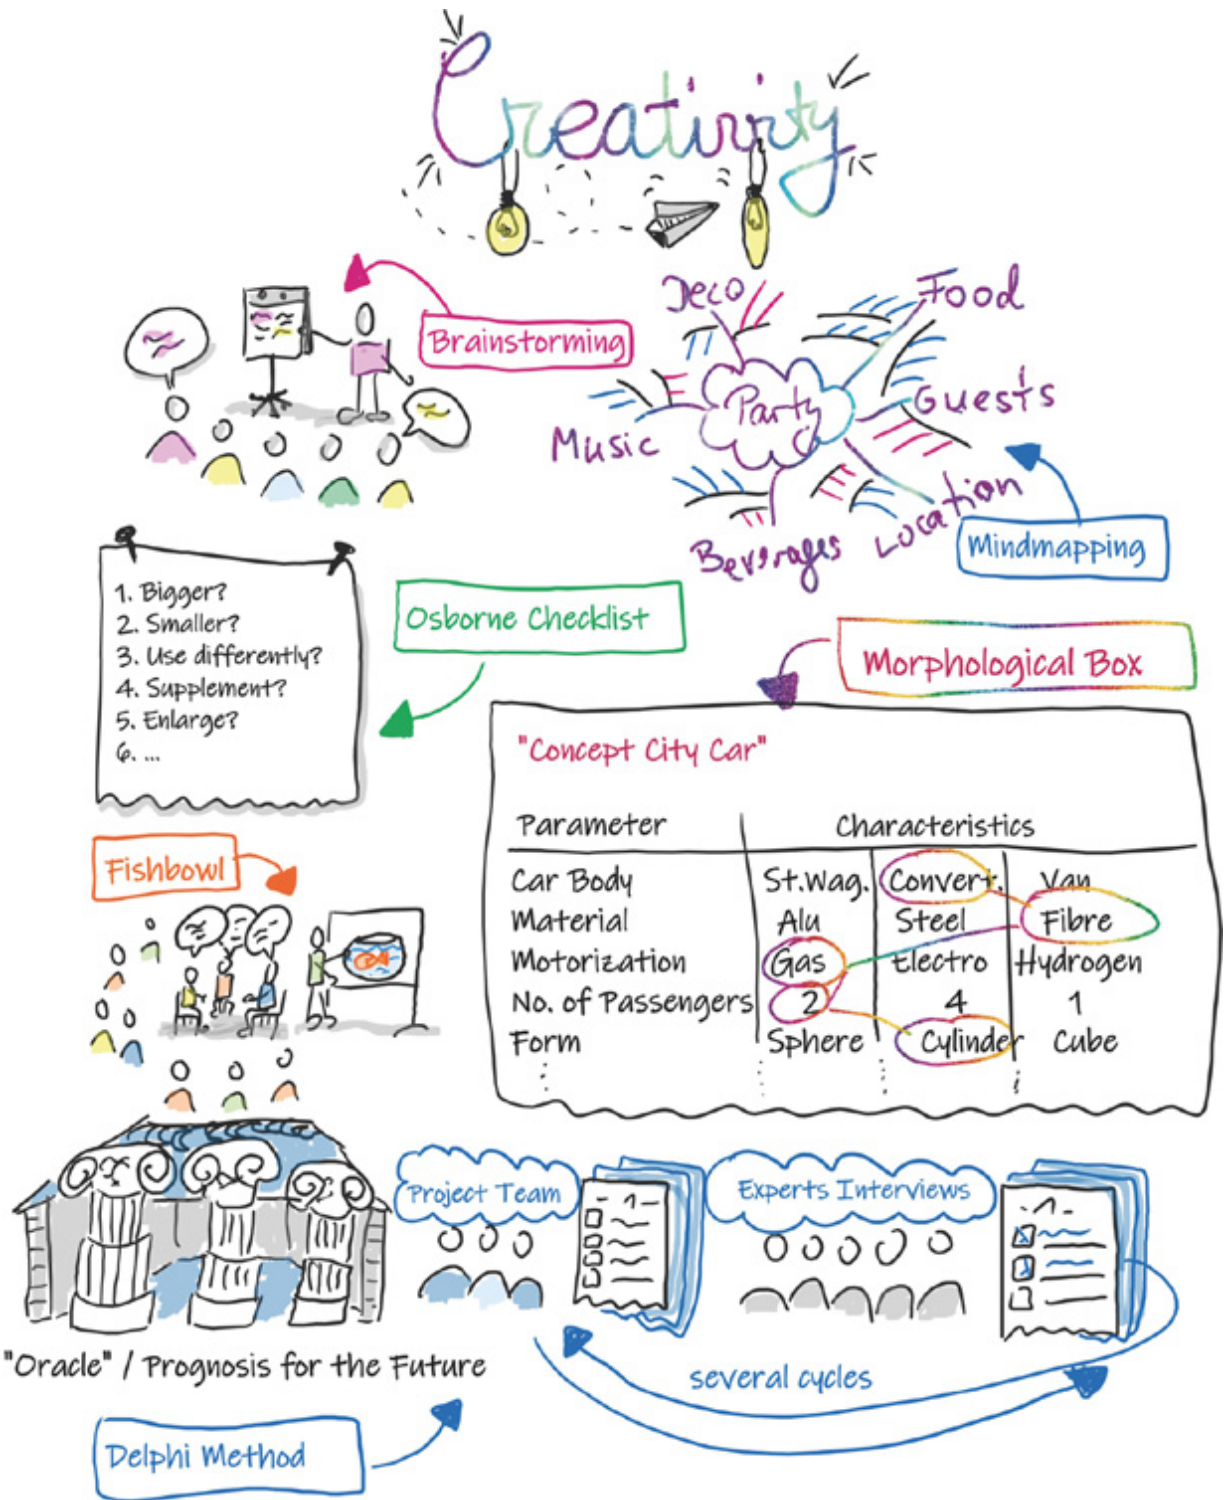 Creativity
Brainstorming
Deco
Food
Party
Guests
Music
Location
Beverages
Mindmapping
1. Bigger?
2. Smaller?
3. Use differently?
4. Supplement?
5. Enlarge?
6. ...
Osborne Checklist
Morphological Box
"Concept City Car"
Parameter Characteristics
Car Body St.Wag. Convert. Van
Material Alu Steel Fibre
Motorization Gas Electro Hydrogen
No. of Passengers 2 4 1
Form Sphere Cylinder Cube
Fishbowl
Project Team
Experts Interviews
-1-
-1-
"Oracle" / Prognosis for the Future
several cycles
Delphi Method